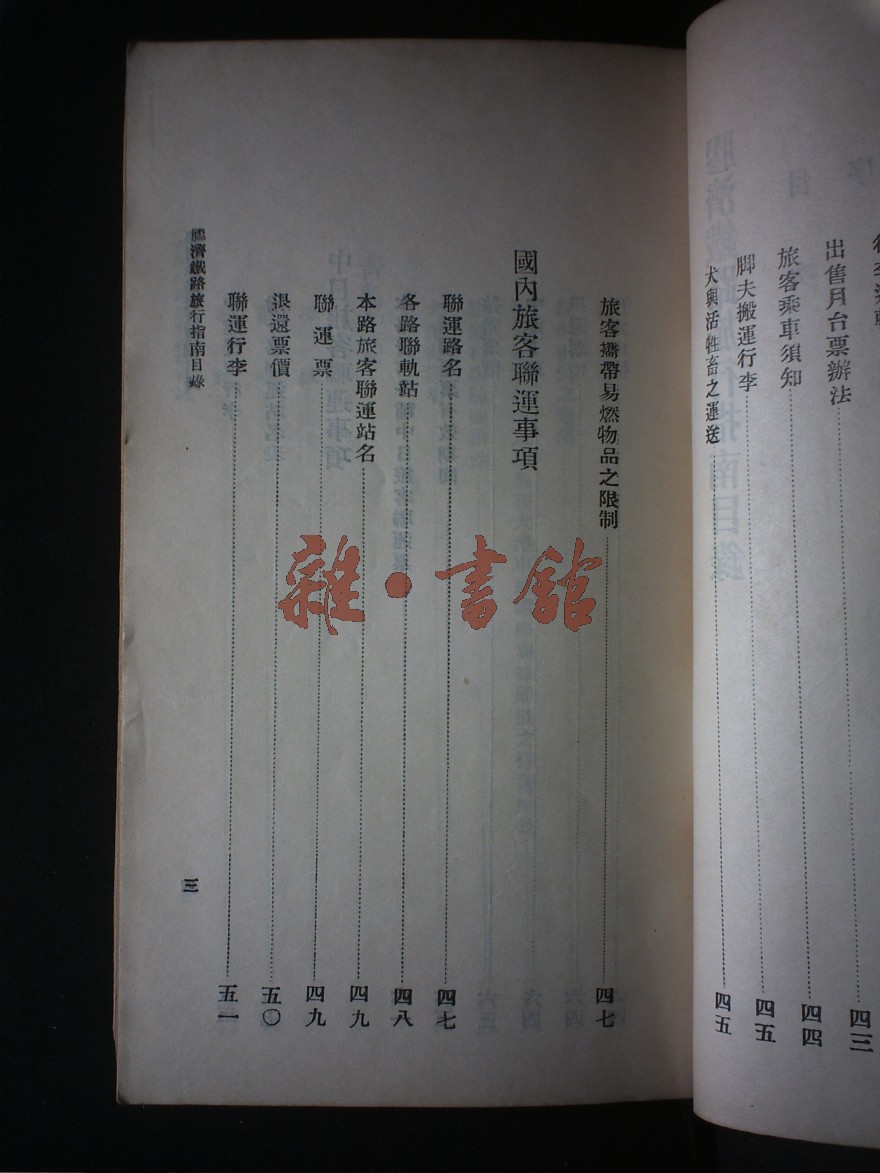 出售月台票辦法……四三
旅客乘車須知……四四
脚夫搬運行李……四五
犬與活牲畜之運送……四五
旅客攜帶易燃物品之限制……四七
國內旅客聯運事項
聯運路名……四七
各路聯軌站……四八
本路旅客聯運站名……四九
聯運票……四九
退還票價……五〇
聯運行李……五一
膠濟鐵路旅行指南目錄
三
雜·書舘